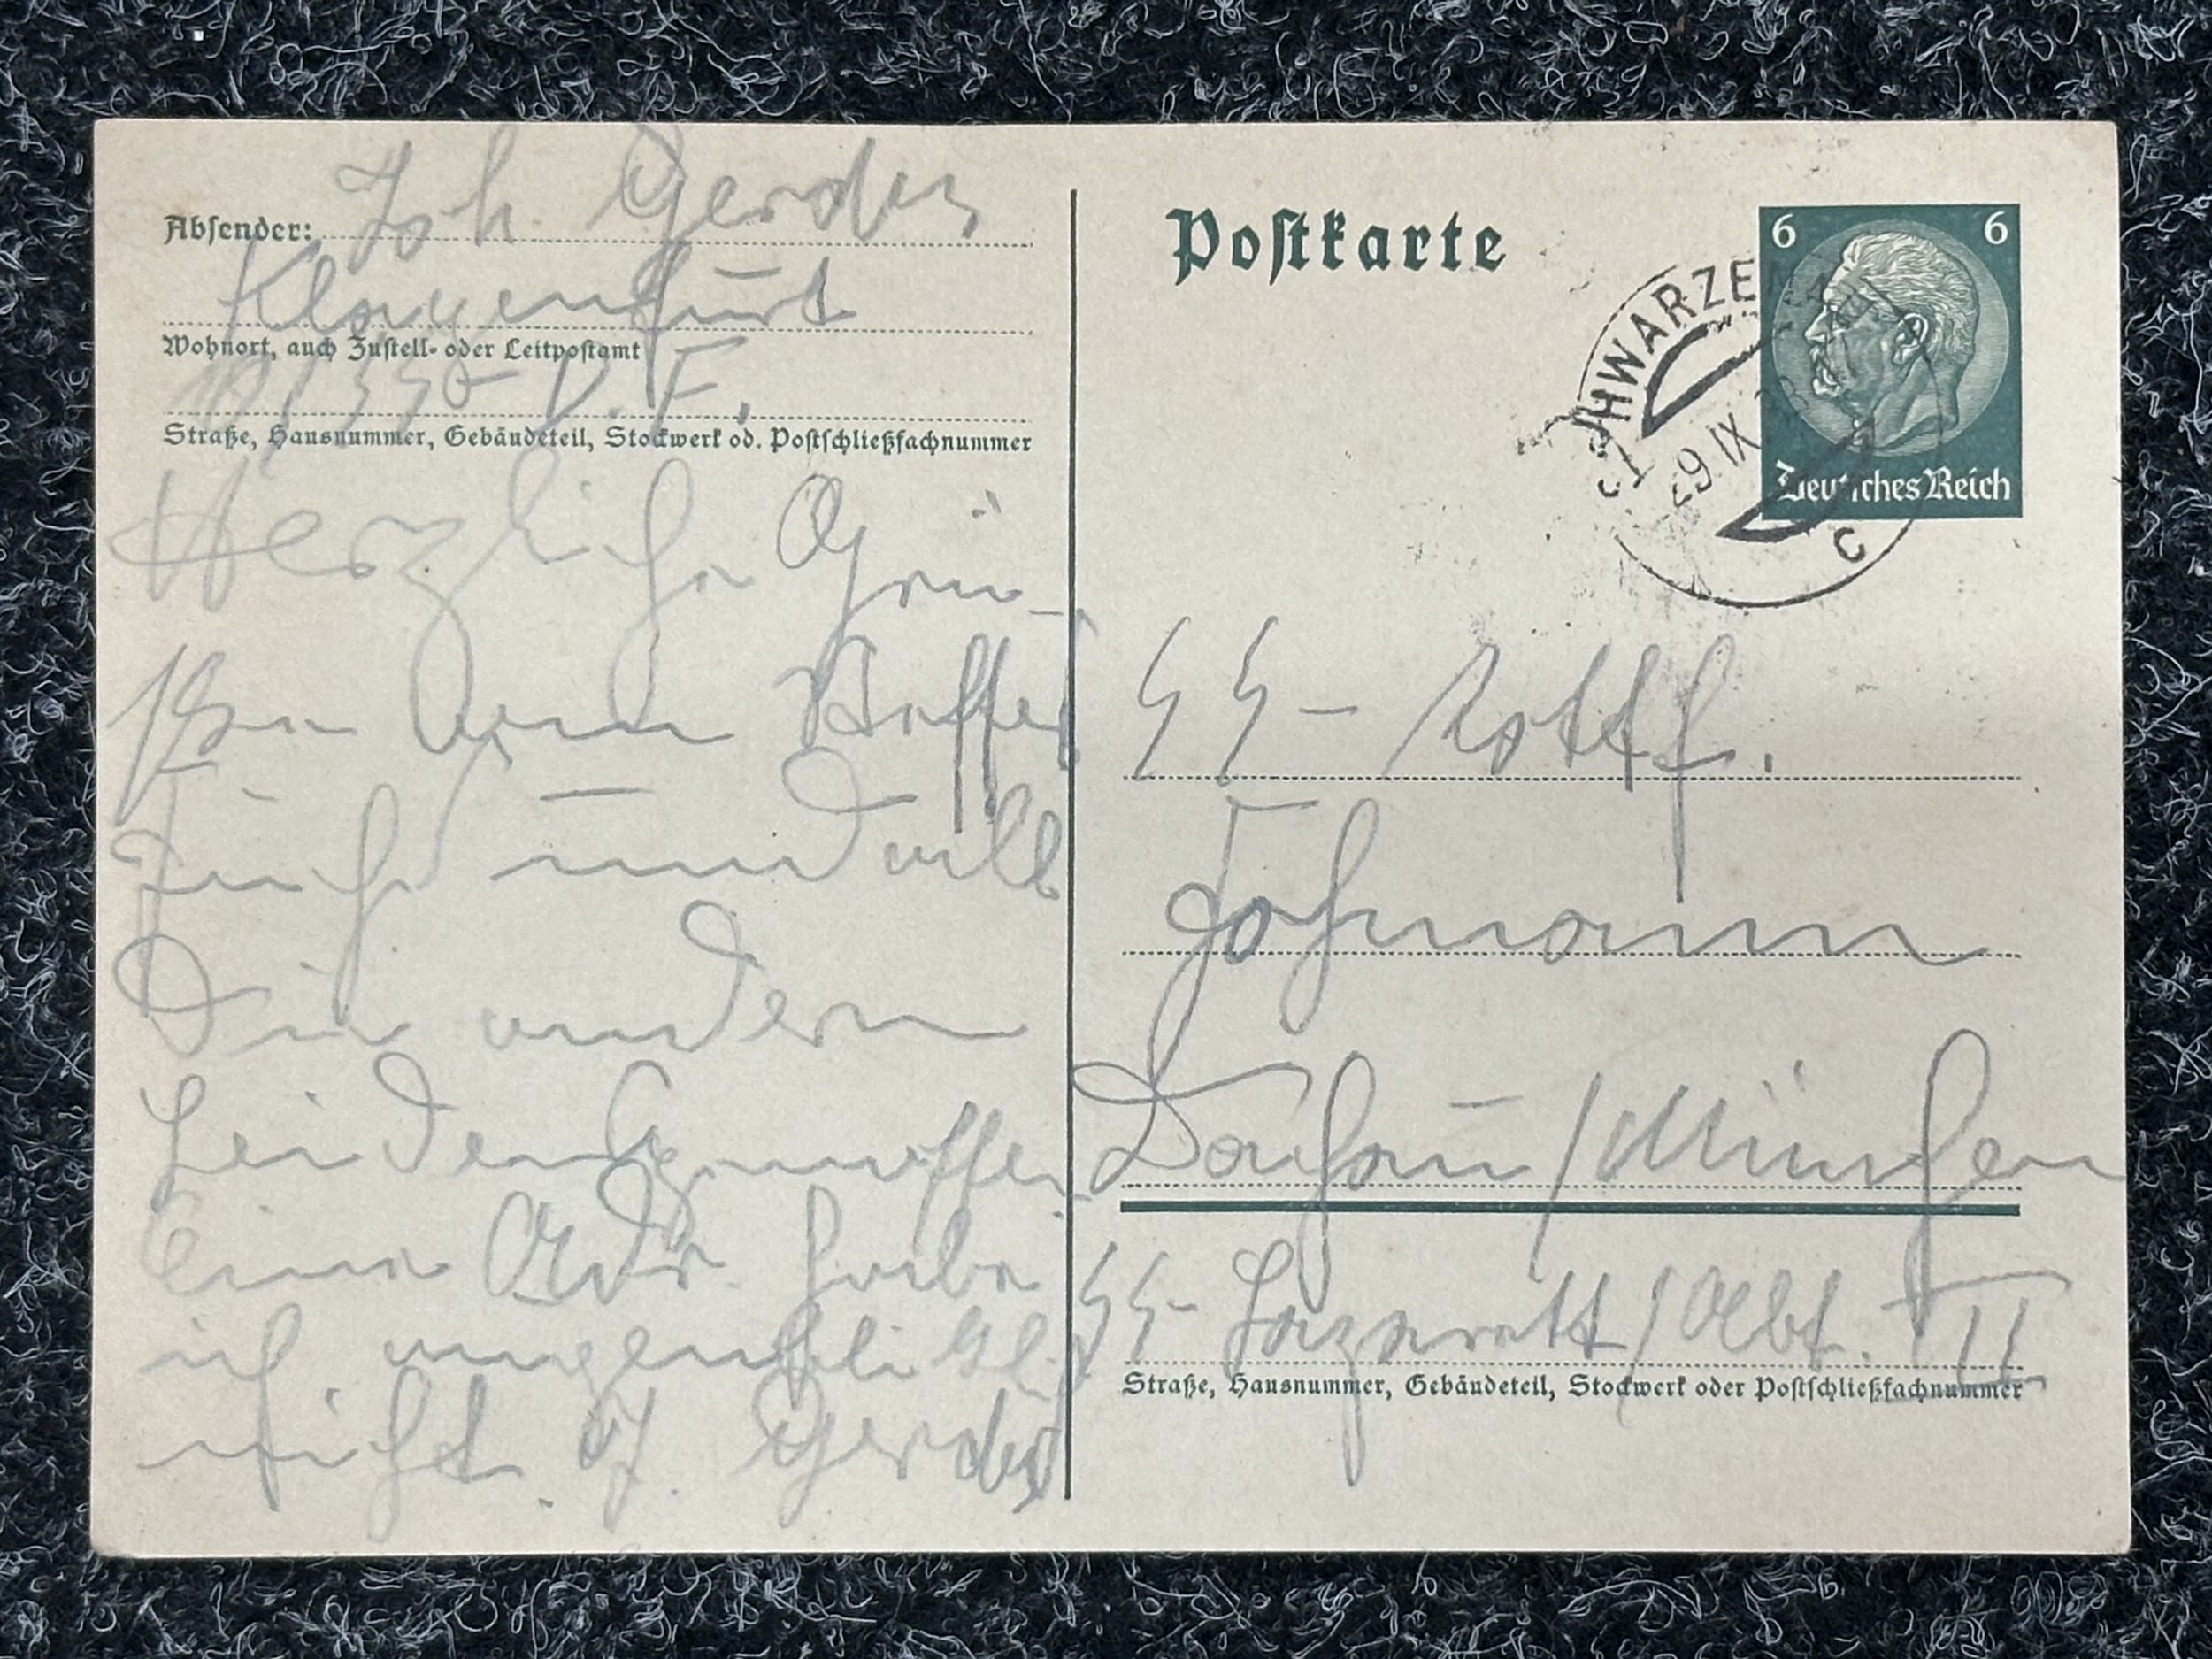 Absender: Joh. Gerdes
Klagenfurt
Wohnort, auch Zustell- oder Leitpostamt
V. F.
Straße, Hausnummer, Gebäudeteil, Stockwerk od. Postschließfachnummer
Herzliche Grü-
ße
und
Die andern
Leidensgenossen
Eine Adr. habe
ich augenblickl.
nicht. J. Gerdes
Postkarte
6 6
Deutsches Reich
SCHWARZE
29 IX
C
SS - Rottf.
Johmann
Dachau / München
SS - Lazarett / Abt. II
Straße, Hausnummer, Gebäudeteil, Stockwerk oder Postschließfachnummer